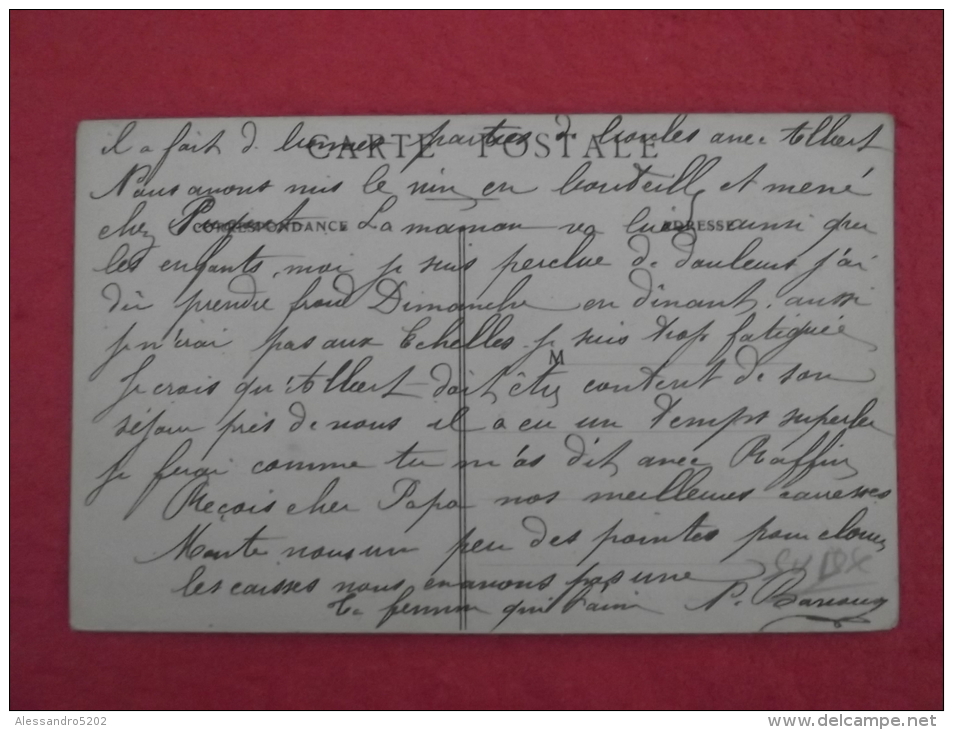 il a fait d. bonnes parties d. boules avec Albert
CARTE POSTALE
Nous avons mis le vin en bouteilles et mené
CORRESPONDANCE
ADRESSE
chez La maman va bien ainsi que
les enfants, moi je suis perclue de douleurs j'ai
dû prendre froid Dimanche en dînant. aussi
je n'irai pas aux Echelles je suis trop fatiguée
M
Je crois qu'Albert doit être content de son
séjour près de nous il a eu un temps superbe
je ferai comme tu m'as dit avec Raffin
Reçois cher Papa nos meilleures caresses
Monte nous un peu des pointes pour clouer
les caisses nous en avons pas une
Ta femme qui t'aime
Alessandro5202
www.delcampe.net